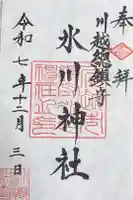 奉拝
川越総鎮守
氷川神社
令和七年十二月三日